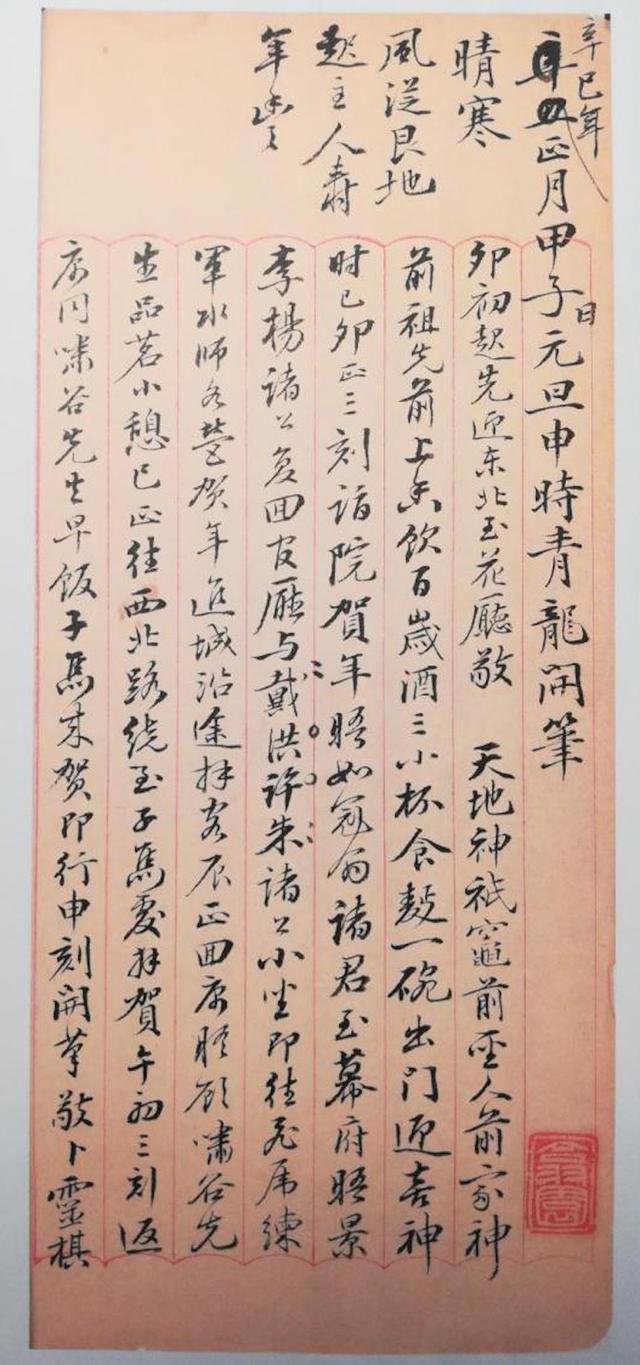 辛巳年
正月甲子日元旦申時青龍開筆
晴寒
風從艮地
起主人壽
年豐
卯初起先迎东北至花廳敬 天地神祇竈前聖人前家神
前祖先前上香飲百歲酒三小杯食麵一碗出門迎喜神
时已卯正三刻詣院賀年晤如冠翁諸君至幕府晤景
李楊諸公复回官廳与戴洪许朱諸公小坐即往飛虎練
軍水師各營賀年進城沿途拜客辰正回寓晤顧嘯谷先
生品茗小憩巳正往西北路绕至子馬處拜賀午初三刻返
寓同嘯谷先生早饭子馬来贺即行申刻開筆敬卜靈棋